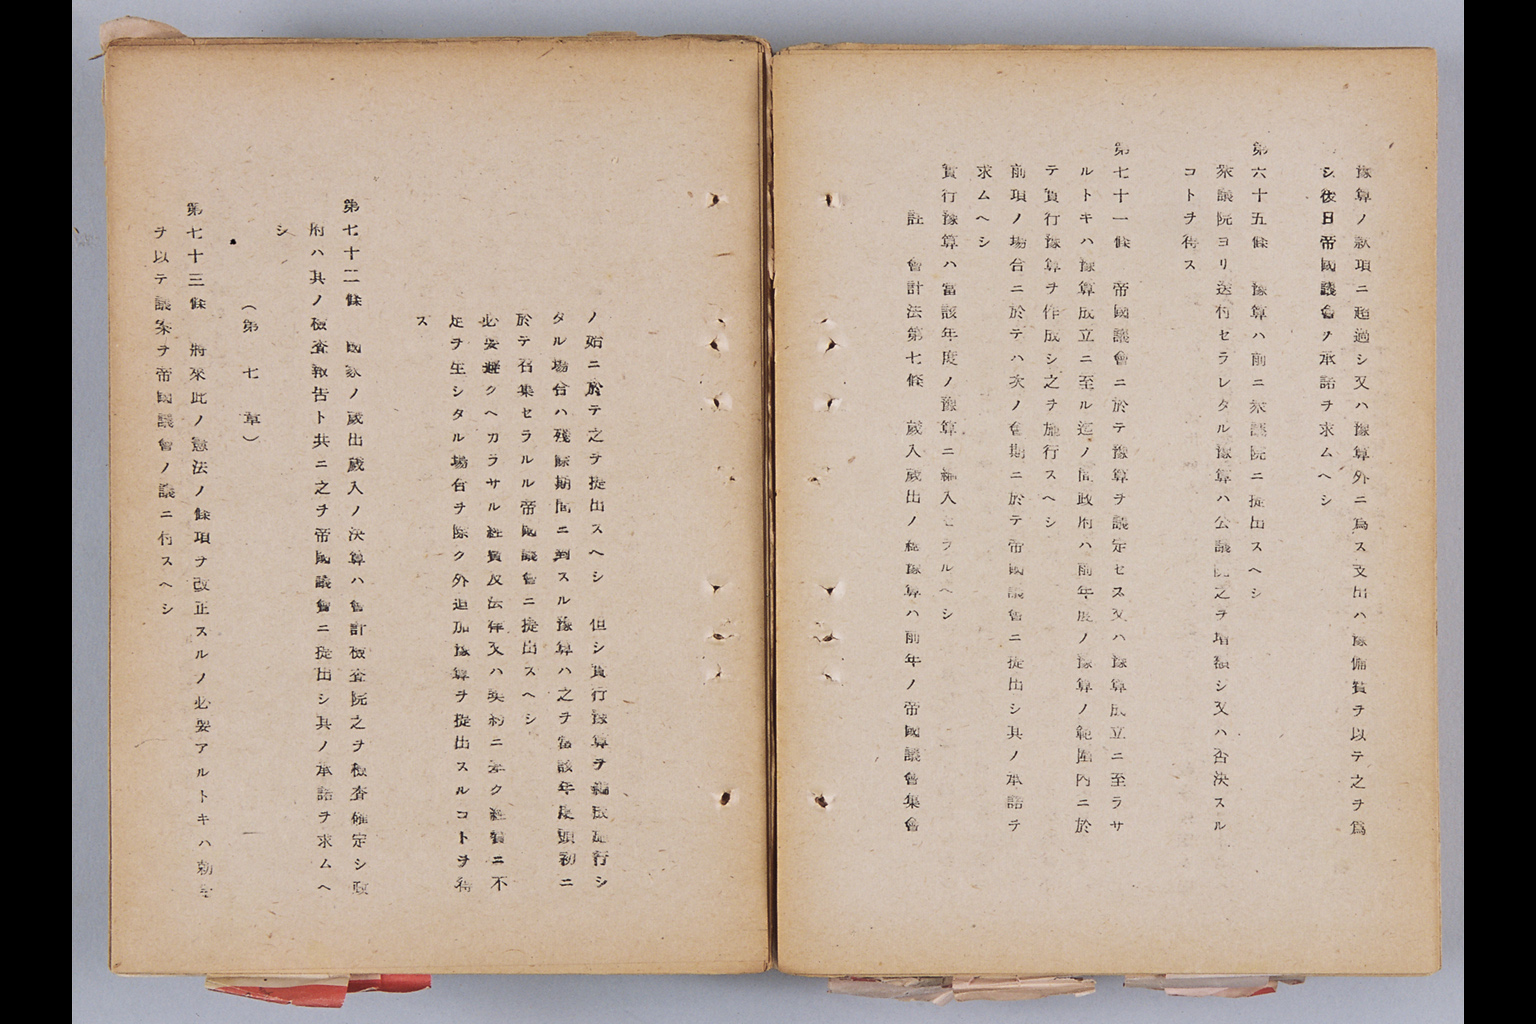 豫算ノ款項ニ超過シ又ハ豫算外ニ爲ス支出ハ豫備費ヲ以テ之ヲ爲
シ後日帝國議會ノ承諾ヲ求ムヘシ
第六十五條　豫算ハ前ニ衆議院ニ提出スヘシ
衆議院ヨリ送付セラレタル豫算ハ公議院之ヲ増額シ又ハ否決スル
コトヲ得ス
第七十一條　帝國議會ニ於テ豫算ヲ議定セス又ハ豫算成立ニ至ラサ
ルトキハ豫算成立ニ至ル迄ノ間政府ハ前年度ノ豫算ノ範圍内ニ於
テ實行豫算ヲ作成シ之ヲ施行スヘシ
前項ノ場合ニ於テハ次ノ會期ニ於テ帝國議會ニ提出シ其ノ承諾テ
求ムヘシ
實行豫算ハ當該年度ノ豫算ニ編入セラルヘシ
註　會計法第七條　歳入歳出ノ總豫算ハ前年ノ帝國議會集會
ノ始ニ於テ之ヲ提出スヘシ　但シ實行豫算ヲ編成施行シ
タル場合ハ殘餘期間ニ對スル豫算ハ之ヲ當該年度頭初ニ
於テ召集セラルル帝國議會ニ提出スヘシ
必要避クヘカラサル經費及法律又ハ契約ニ基ク經費ニ不
足ヲ生シタル場合ヲ除ク外追加豫算ヲ提出スルコトヲ得
ス
第七十二條　國家ノ歳出歳入ノ決算ハ會計檢査院之ヲ檢査確定シ政
府ハ其ノ檢査報告ト共ニ之ヲ帝國議會ニ提出シ其ノ承諾ヲ求ムヘ
シ
（第七章）
第七十三條　將來此ノ憲法ノ條項ヲ改正スルノ必要アルトキハ勅命
ヲ以テ議案ヲ帝國議會ノ議ニ付スヘシ